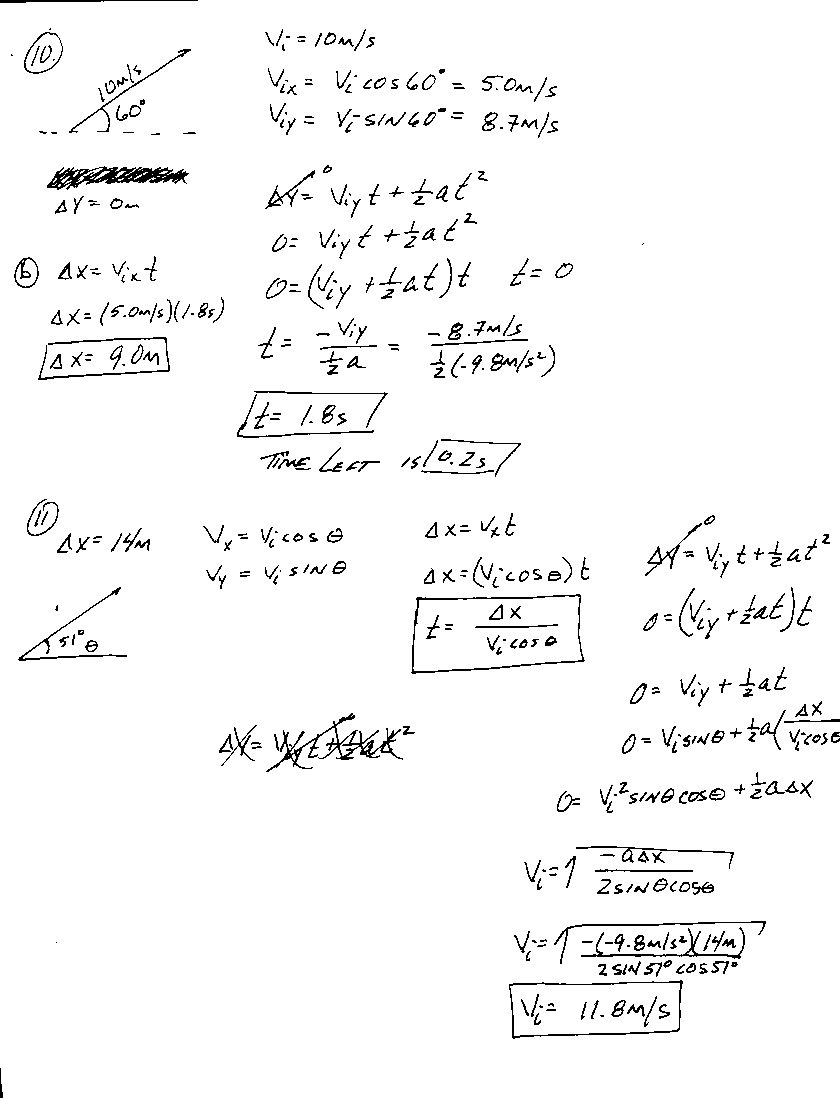 10.
10m/s
60°
Vi = 10m/s
Vix = Vi cos 60° = 5.0m/s
Viy = Vi SIN 60° = 8.7m/s
ΔY = 0m
ΔY = Viy t + 1/2 a t² 0
0 = Viy t + 1/2 a t²
0 = (Viy + 1/2 a t) t t = 0
t = -Viy / 1/2 a = -8.7m/s / 1/2 (-9.8m/s²)
t = 1.8s
TIME LEFT IS 0.2s
b ΔX = Vix t
ΔX = (5.0m/s)(1.8s)
ΔX = 9.0m
11
ΔX = 14m
51° θ
Vx = Vi cos θ
Vy = Vi SIN θ
ΔX = Vx t
ΔX = (Vi cos θ) t
t = ΔX / Vi cos θ
ΔY = Viy t + 1/2 a t²
ΔY = Viy t + 1/2 a t² 0
0 = (Viy + 1/2 a t) t
0 = Viy + 1/2 a t
0 = Vi SIN θ + 1/2 a (ΔX / Vi cos θ
0 = Vi² SIN θ COS θ + 1/2 a ΔX
Vi = √ -a ΔX / 2 SIN θ COS θ
Vi = √ -(-9.8m/s²)(14m) / 2 SIN 51° COS 51°
Vi = 11.8m/s